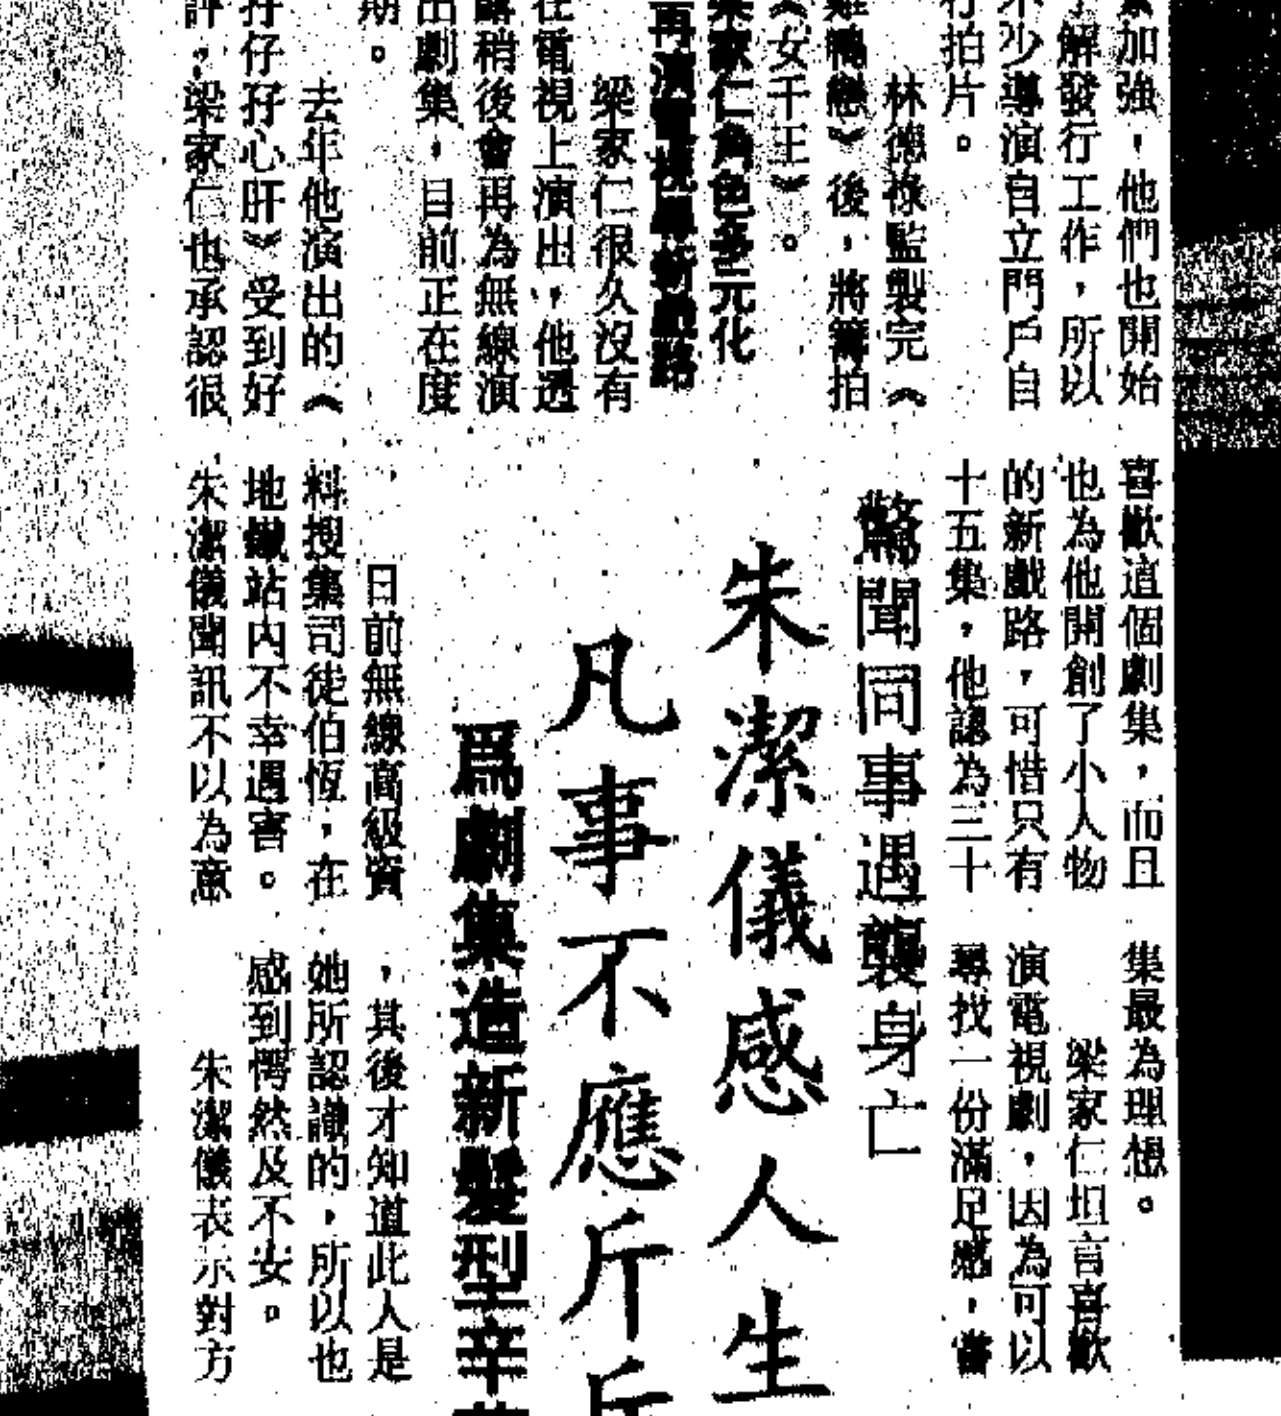 加強，他們也開始
解發行工作，所以
不少導演自立門戶自
行拍片。
林德祿監製完《
鴨戀》後，將籌拍
《女千王》。
梁家仁角色多元化
再演電視尋新戲路
梁家仁很久沒有
在電視上演出，他透
露稍後會再為無線演
出劇集，目前正在度
期。
去年他演出的《
孖仔孖心肝》受到好
評，梁家仁也承認很
喜歡這個劇集，而且
也為他開創了小人物
的新戲路，可惜只有
十五集，他認為三十
集最為理想。
梁家仁坦言喜歡
演電視劇，因為可以
尋找一份滿足感，當
驚聞同事遇襲身亡
朱潔儀感人生
凡事不應斤斤
爲劇集造新髮型辛
日前無線高級資
料搜集司徒伯恆，在
地鐵站內不幸遇害。
朱潔儀聞訊不以為意
，其後才知道此人是
她所認識的，所以也
感到愕然及不安。
朱潔儀表示對方